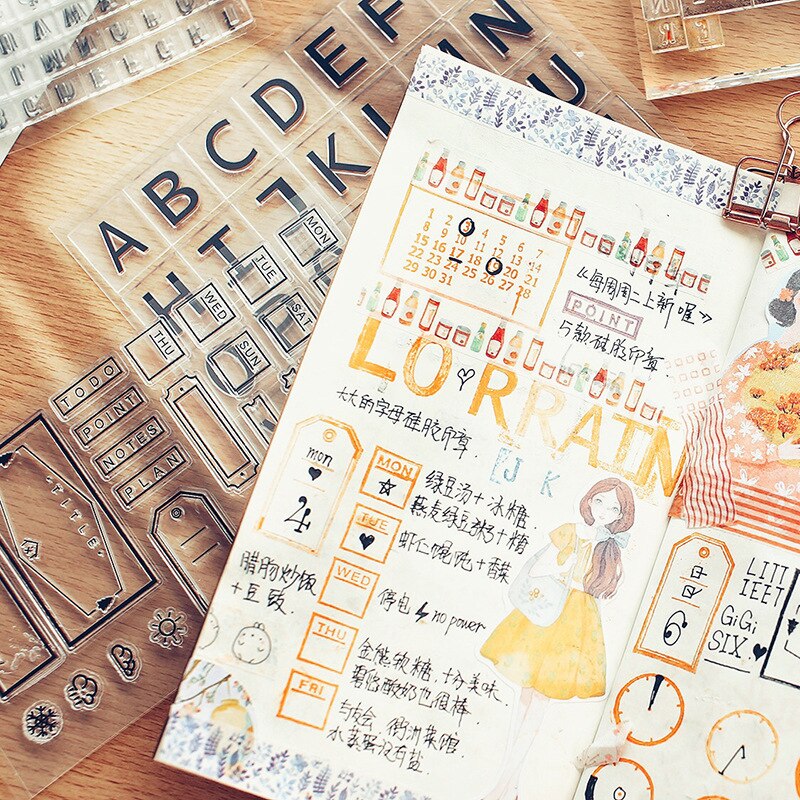 A B C D E F
H I J K
MON
TUE
WED
THU
SAT
SUN
TO DO
POINT
NOTES
PLAN
TITLE
1 2 3 4 5 6 7
8 9 10 11 12 13 14
15 16 17 18 19 20 21
22 23 24 25 26 27 28
29 30 31
《每周周二上新喔》
POINT
5款硅胶印章.
LORRAIN
大大的字母硅胶印章.
J K
mon
4
MON
绿豆汤+冰糖.
燕麦绿豆粥+糖
TUE
虾仁馄饨+香菜
腊肠炒饭
WED
停电 no power
THU
十分美味.
酸奶也很棒.
FRI
水蒸蛋没有盐.
6
LITT
IEET
GiGi
SIX